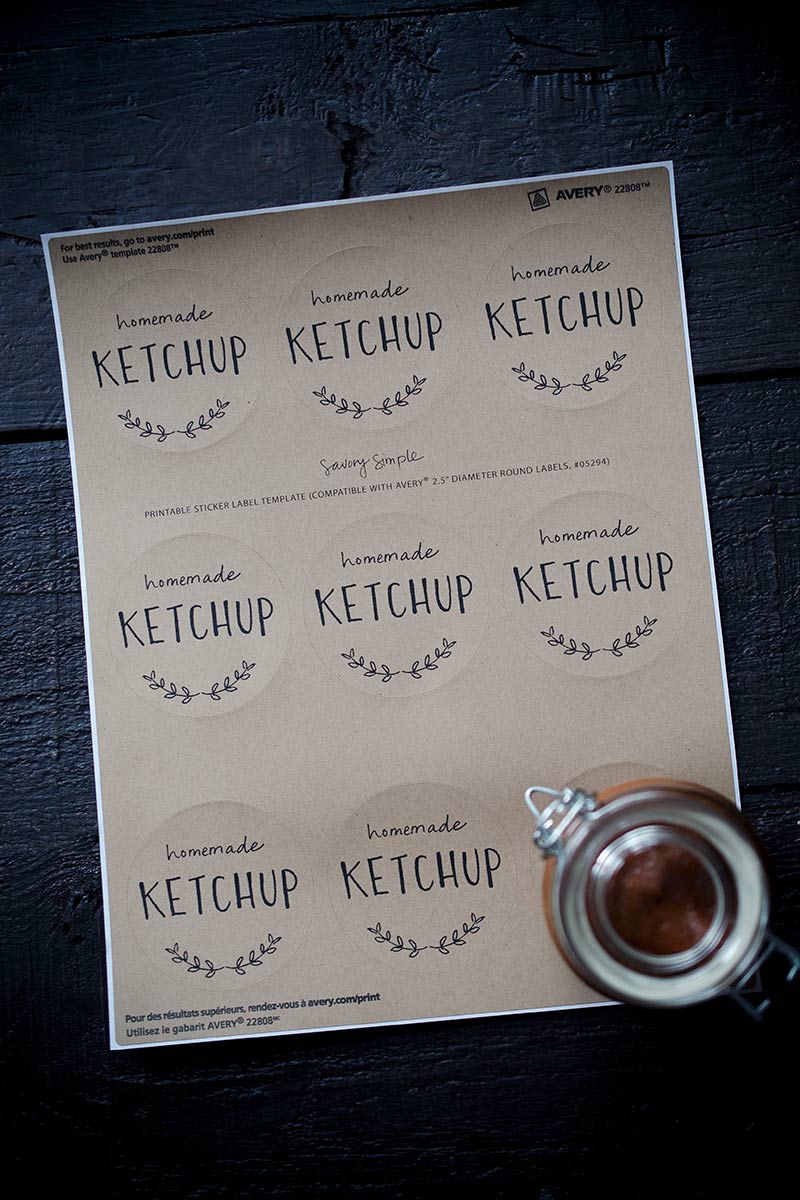 For best results, go to avery.com/print
Use Avery® template 22808™
AVERY® 22808™
homemade
KETCHUP
homemade
KETCHUP
homemade
KETCHUP
Savory Simple
PRINTABLE STICKER LABEL TEMPLATE (COMPATIBLE WITH AVERY® 2.5" DIAMETER ROUND LABELS, #05294)
homemade
KETCHUP
homemade
KETCHUP
homemade
KETCHUP
homemade
KETCHUP
homemade
KETCHUP
Pour des résultats supérieurs, rendez-vous à avery.com/print
Utilisez le gabarit AVERY® 22808ᴹᶜ